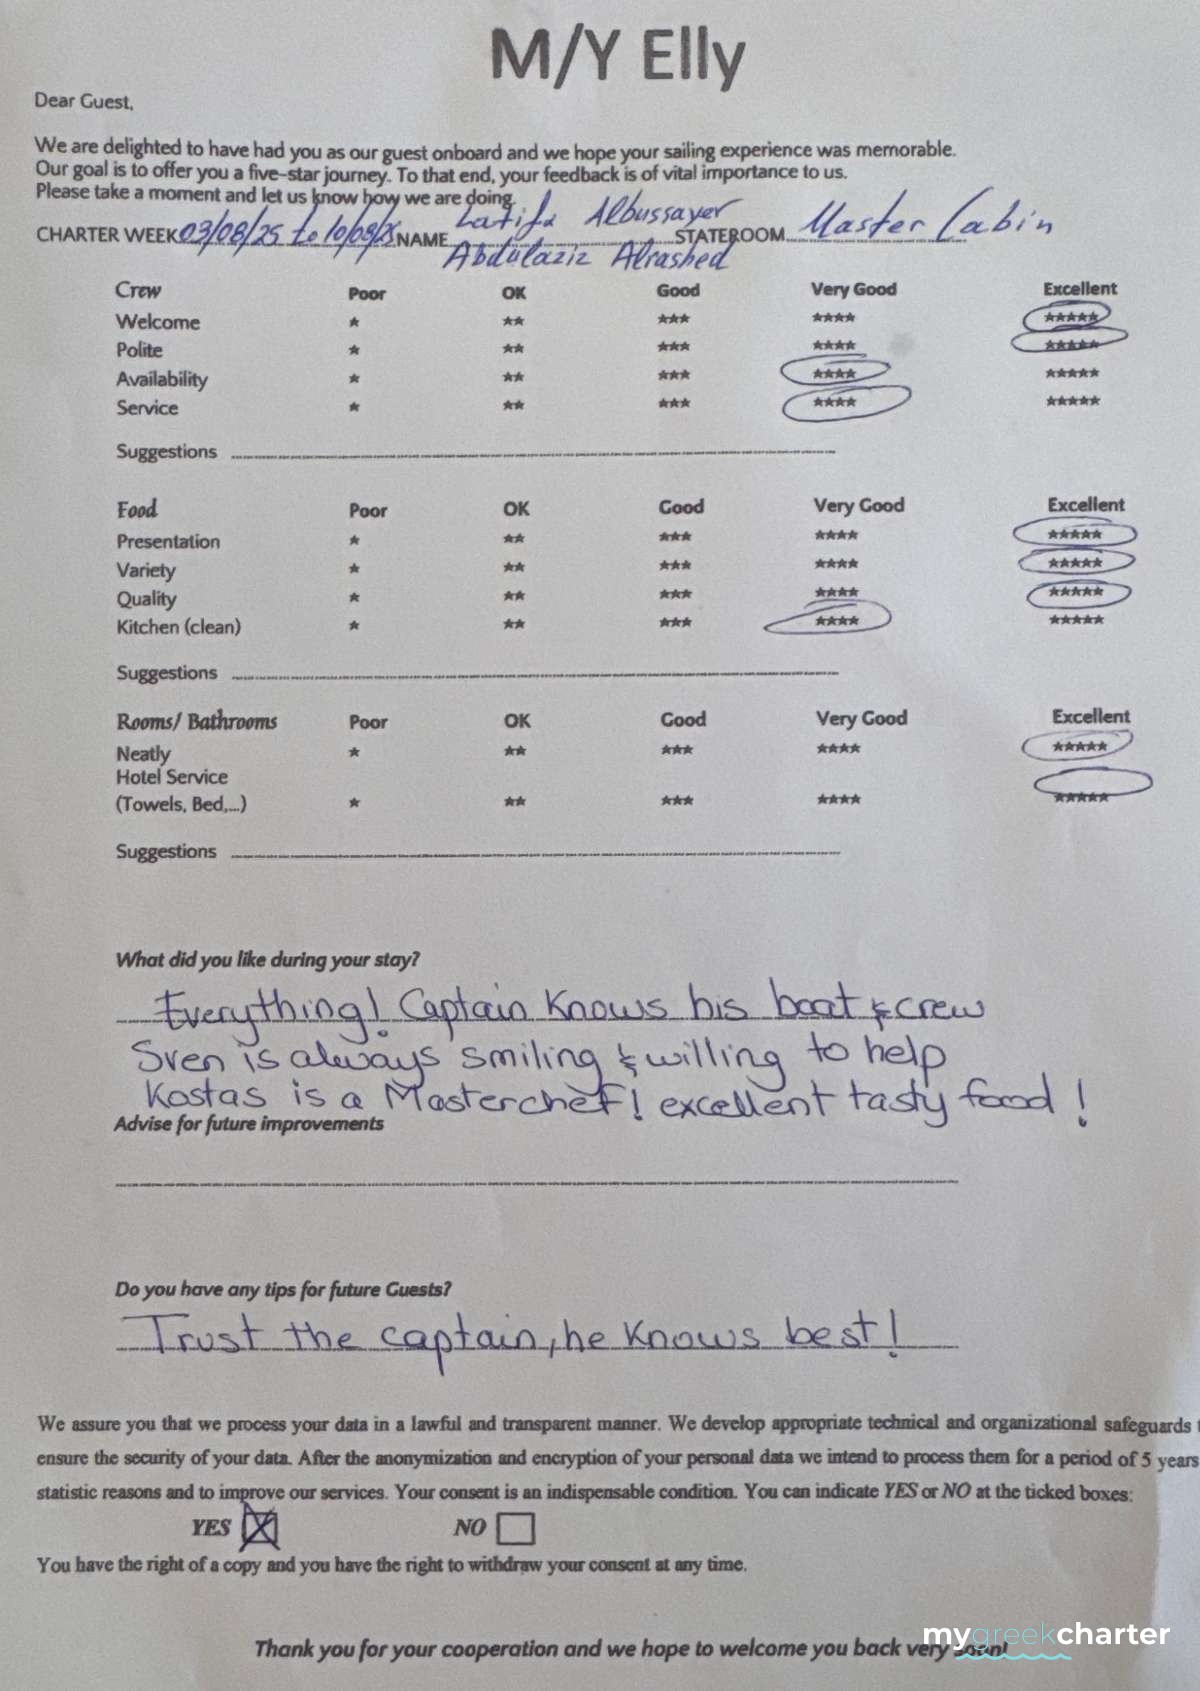 M/Y Elly
Dear Guest,
We are delighted to have had you as our guest onboard and we hope your sailing experience was memorable.
Our goal is to offer you a five-star journey. To that end, your feedback is of vital importance to us.
Please take a moment and let us know how we are doing.
CHARTER WEEK 03/08/25 to 10/08/25 NAME Latifa Albussayer STATEROOM Master Cabin
Abdulaziz Alrashed
Crew Poor OK Good Very Good Excellent
Welcome ★ ★★ ★★★ ★★★★ ★★★★★
Polite ★ ★★ ★★★ ★★★★ ★★★★★
Availability ★ ★★ ★★★ ★★★★ ★★★★★
Service ★ ★★ ★★★ ★★★★ ★★★★★
Suggestions
Food Poor OK Good Very Good Excellent
Presentation ★ ★★ ★★★ ★★★★ ★★★★★
Variety ★ ★★ ★★★ ★★★★ ★★★★★
Quality ★ ★★ ★★★ ★★★★ ★★★★★
Kitchen (clean) ★ ★★ ★★★ ★★★★ ★★★★★
Suggestions
Rooms/ Bathrooms Poor OK Good Very Good Excellent
Neatly ★ ★★ ★★★ ★★★★ ★★★★★
Hotel Service
(Towels, Bed,...) ★ ★★ ★★★ ★★★★ ★★★★★
Suggestions
What did you like during your stay?
Everything! Captain knows his boat & crew
Sven is always smiling & willing to help
Kostas is a Masterchef! excellent tasty food!
Advise for future improvements
Do you have any tips for future Guests?
Trust the captain, he knows best!
We assure you that we process your data in a lawful and transparent manner. We develop appropriate technical and organizational safeguards
ensure the security of your data. After the anonymization and encryption of your personal data we intend to process them for a period of 5 years
statistic reasons and to improve our services. Your consent is an indispensable condition. You can indicate YES or NO at the ticked boxes:
YES NO
You have the right of a copy and you have the right to withdraw your consent at any time.
mygreekcharter
Thank you for your cooperation and we hope to welcome you back very soon!